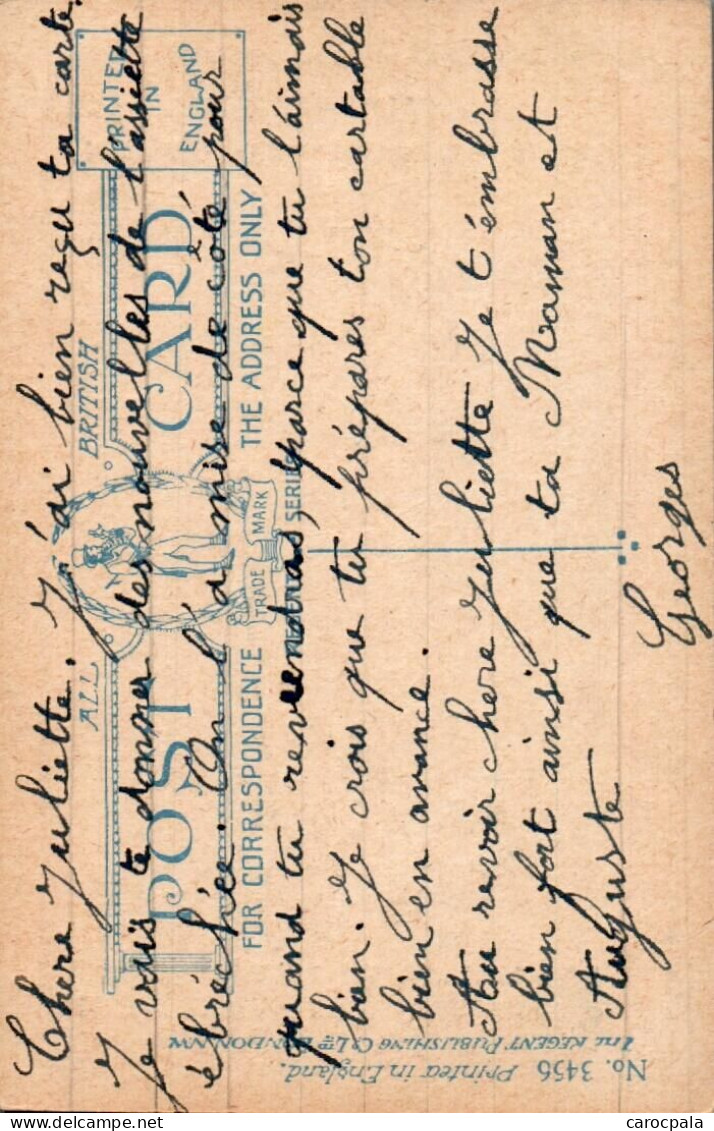 Chere Juliette. J'ai bien reçu ta carte.
Je vais te donner des nouvelles de l'assiette
ébréchée. On l'a mise de côté pour
quand tu reviendras, parce que tu l'aimais
bien. Je crois que tu prépares ton cartable
bien en avance.
Au revoir chere Juliette Je t'émbrasse
bien fort ainsi que ta Maman et
Auguste
Georges
ALL BRITISH
POST CARD
PRINTED
IN
ENGLAND
TRADE MARK
FOR CORRESPONDENCE
THE ADDRESS ONLY
SERIES
No. 3456 Printed in England.
The REGENT PUBLISHING Co Ltd LONDON NW
carocpala